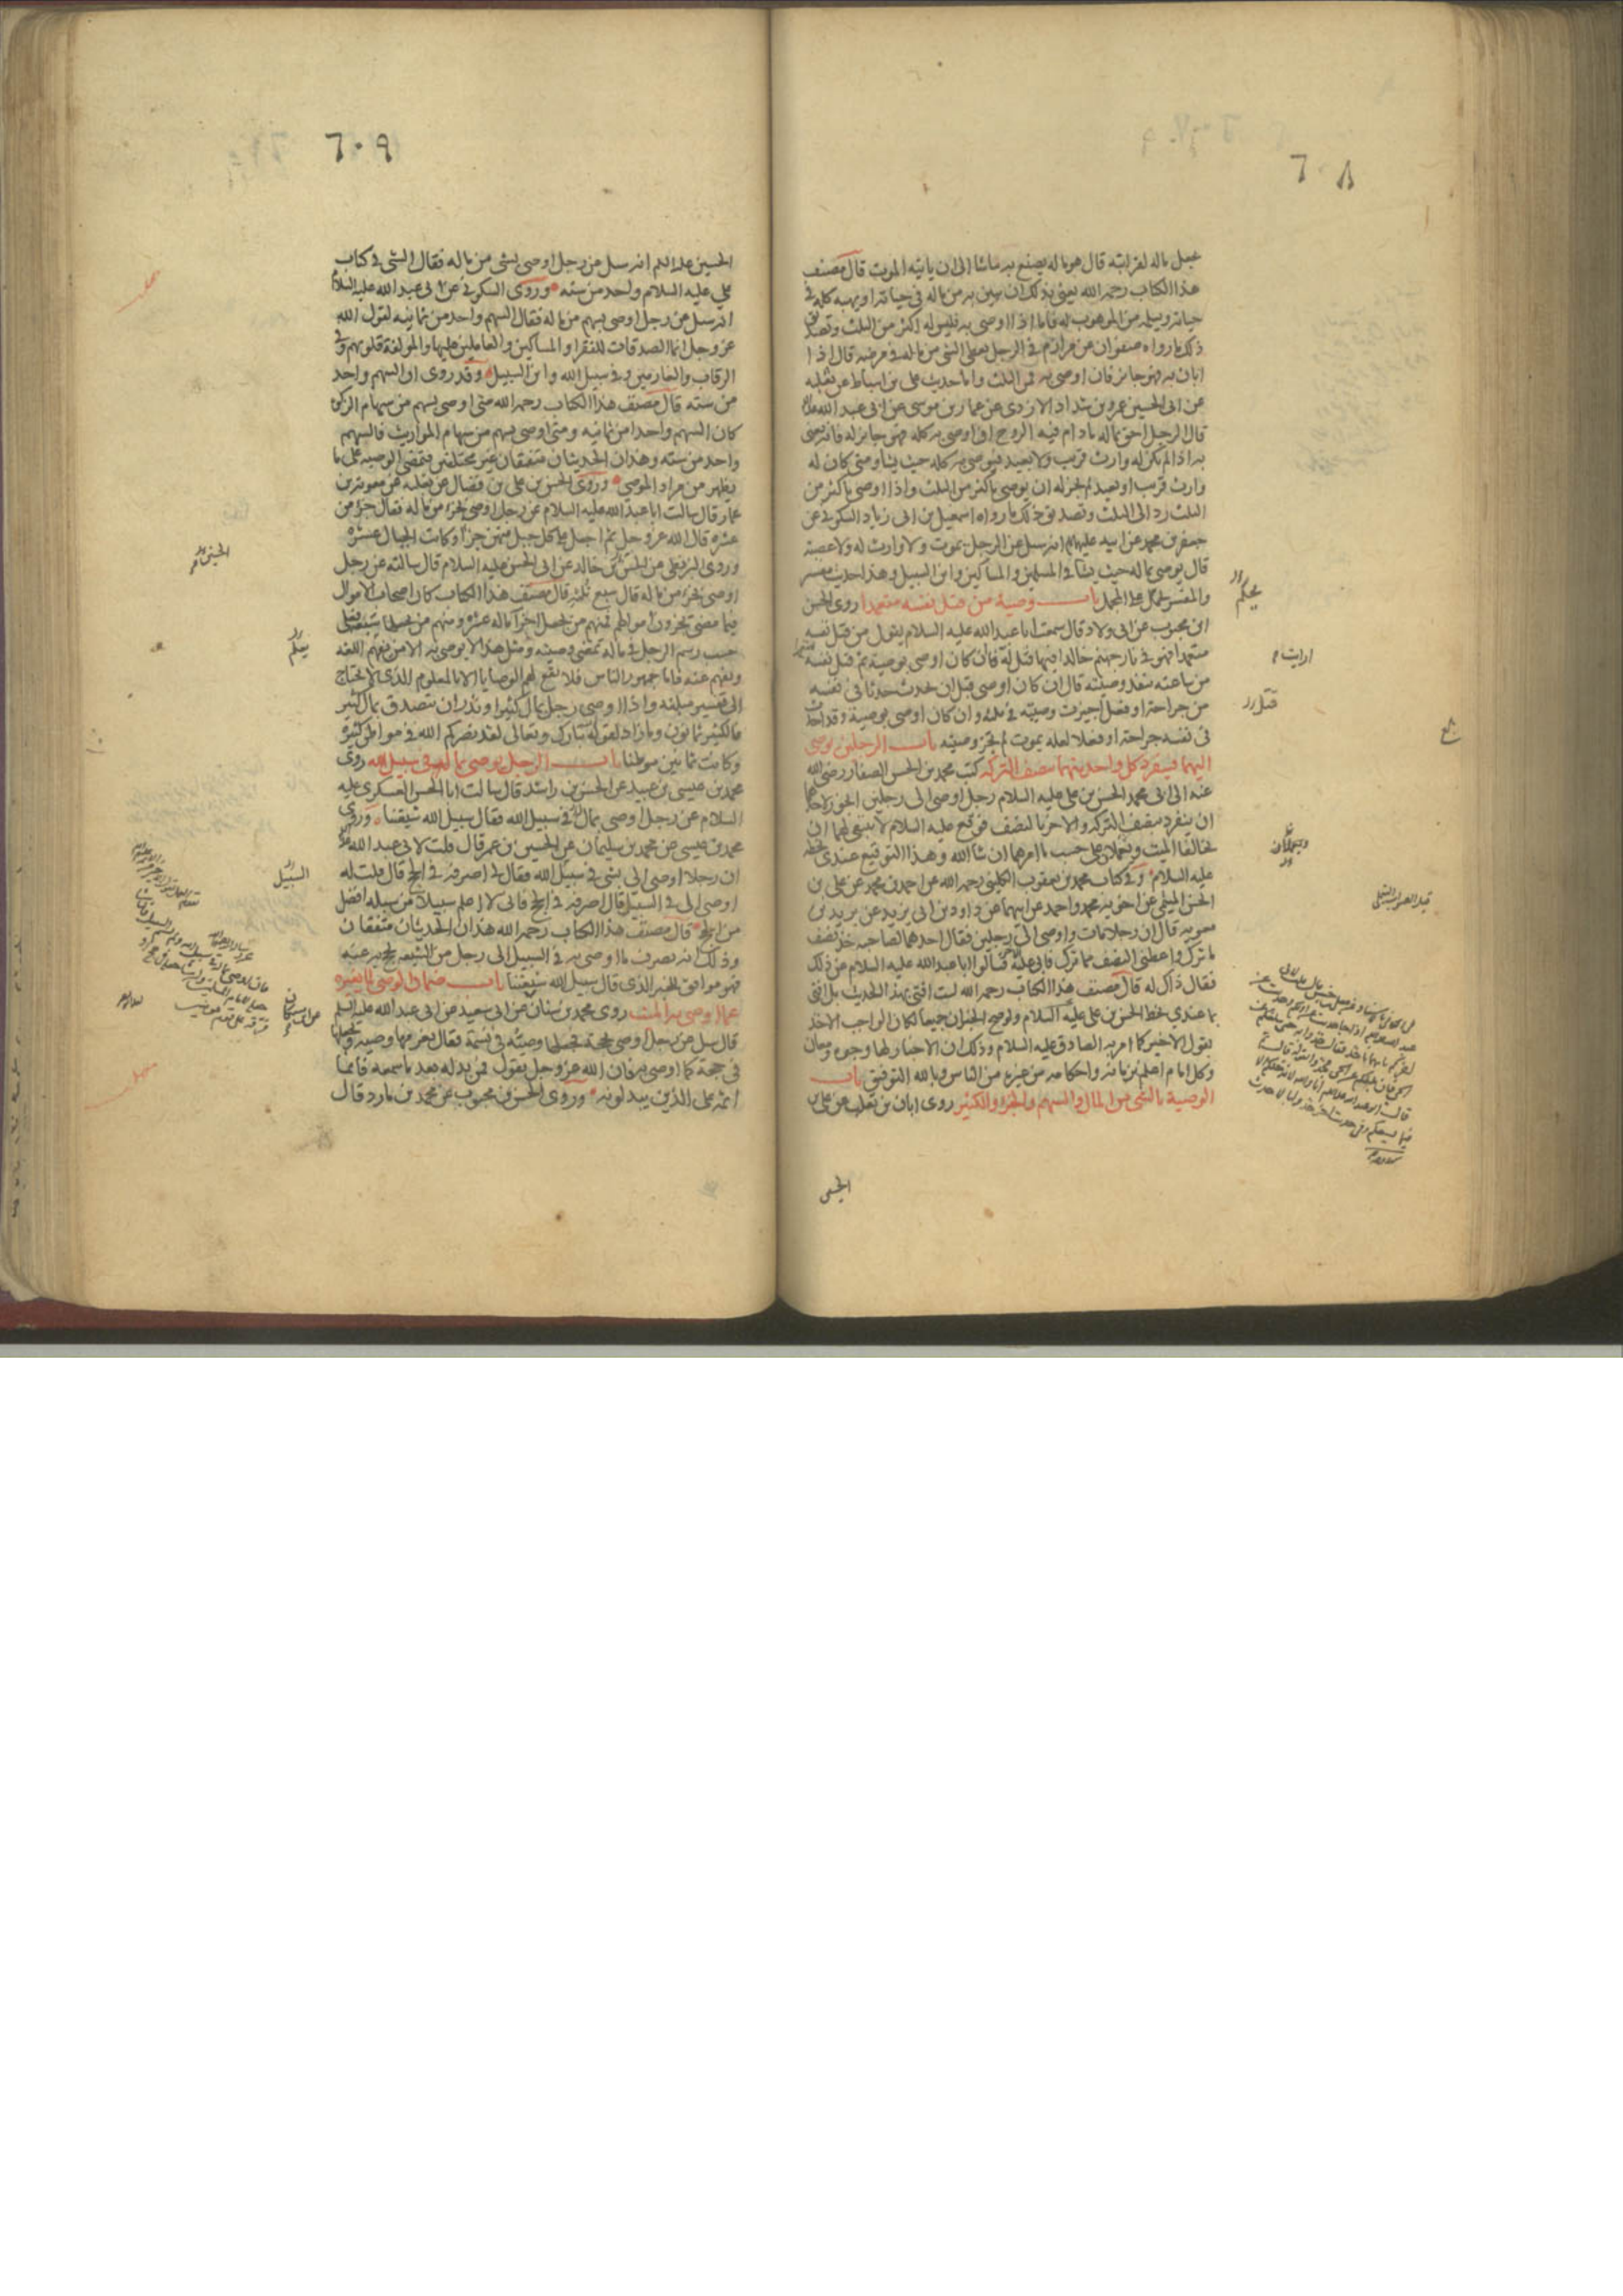 ٦٠٨
يجعل ماله لقرابته قال هو ماله يصنع به ماشا الى ان ياتيه الموت قال مصنف
هذا الكتاب رحمه الله يعنى بذلك ان يبين به من ماله فى حياته او يهبه كله فى
حياته ويسلمه من الموهوب له فاما اذا اوصى به فليس له اكثر من الثلث وتصديق
ذلك ما رواه صفوان عن مرازم فى الرجل يعطى الشى من ماله فى مرضه قال اذا
ابان به فهو جايز فان اوصى به فمن الثلث واما حديث على بن اسباط عن ثعلبه
عن ابى الحسين عمرو بن شداد الازدى عن عمار بن موسى عن ابى عبد الله
قال الرجل احق بماله مادام فيه الروح اذا اوصى به كله فهو جايز له فانه يعنى
به اذا لم يكن له وارث قريب ولا بعيد فيوصى به كله حيث يشا ومتى كان له
وارث قريب او بعيد لم يجز له ان يوصى باكثر من الثلث واذا اوصى باكثر من
الثلث رد الى الثلث وتصديق ذلك ما رواه اسمعيل بن ابى زياد السكونى عن
جعفر بن محمد عن ابيه عليهما انه سيل عن الرجل يموت ولا وارث له ولا عصبة
قال يوصى بماله حيث يشا فى المسلمين والمساكين وابن السبيل وهذا حديث مفسر
والمفسر يحكم على المجمل باب وصية من قتل نفسه متعمدا روى الحسن
ابن محبوب عن ابى ولاد قال سمعت ابا عبد الله عليه السلام يقول من قتل نفسه
متعمدا فهو فى نار جهنم خالدا فيها قيل له فان كان اوصى بوصية ثم قتل نفسه
من ساعته تنفذ وصيته قال ان كان اوصى قبل ان يحدث حدثا فى نفسه
من جراحة او فعل اجيزت وصيته فى ثلثه وان كان اوصى بوصية وقد احدث
فى نفسه جراحة او فعلا لعله يموت لم تجز وصيته باب الرجلين يوصى
اليهما فيتفرد كل واحد منهما بنصف التركه كتب محمد بن الحسن الصفار رضى الله
عنه الى ابى محمد الحسن بن على عليه السلام رجل اوصى الى رجلين ايجوز لاحدهما
ان ينفرد بنصف التركه والاخر بالنصف فوقع عليه السلام لا ينبغى لهما ان
يخالفا الميت ويعملان على حسب ما امرهما ان شا الله وهذا التوقيع عندى بخطه
عليه السلام وفى كتاب محمد بن يعقوب الكلينى رحمه الله عن احمد بن محمد عن على بن
الحسن الميثمى عن اخويه محمد واحمد عن ابيهما عن داود بن ابى يزيد عن بريد بن
معويه قال ان رجلا مات واوصى الى رجلين فقال احدهما لصاحبه خذ نصف
ما ترك واعطنى النصف مما ترك فابى عليه فسالوا ابا عبد الله عليه السلام عن ذلك
فقال ذاك له قال مصنف هذا الكتاب رحمه الله لست افتى بهذا الحديث بل افتى
بما عندى بخط الحسن بن على عليه السلام ولو صح الخبران جميعا لكان الواجب الاخذ
بقول الاخير كما امر به الصادق عليه السلام وذلك ان الاخبار لها وجوه ومعان
وكل امام اعلم بزمانه واحكامه من غيره من الناس وبالله التوفيق باب
الوصية بالشى من المال والسهم والجزو والكثير روى ابان بن تغلب عن على بن
الحسين
يحكم
ارايت
قتل
ويعملان
٦٠٩
الحسين عليه السلم انه سيل عن رجل اوصى بشى من ماله فقال الشى فى كتاب
على عليه السلام واحد من سته وروى السكونى عن ابى عبد الله عليه السلام
انه سيل عن رجل اوصى بسهم من ماله فقال السهم واحد من ثمانيه لقول الله
عز وجل انما الصدقات للفقرا والمساكين والعاملين عليها والمولفة قلوبهم وفى
الرقاب والغارمين وفى سبيل الله وابن السبيل وقد روى ان السهم واحد
من سته قال مصنف هذا الكتاب رحمه الله متى اوصى بسهم من سهام الزكوة
كان السهم واحدا من ثمانيه ومتى اوصى بسهم من سهام المواريث فالسهم
واحد من سته وهذان الحديثان متفقان غير مختلفين فتمضى الوصيه على ما
يظهر من مراد الموصى وروى الحسن بن على بن فضال عن ثعلبه عن معويه بن
عمار قال سالت ابا عبد الله عليه السلام عن رجل اوصى بجزء من ماله فقال جزء من
عشرة قال الله عز وجل ثم اجعل على كل جبل منهن جزءا وكانت الجبال عشرة
وروى البزنطى عن الحسين بن خالد عن ابى الحسن عليه السلام قال سالته عن رجل
اوصى بجزء من ماله قال سبع ثلثه قال مصنف هذا الكتاب كان اصحاب الاموال
فيما مضى يجزون اموالهم فمنهم من يجعل اجزآ ماله عشرة ومنهم من يجعلها سبعة فعلى
حسب رسم الرجل فى ماله تمضى وصيته ومثل هذا لا يوصى به الا من يعلم اللغه
ويفهم عنه فاما جمهور الناس فلا تقع لهم الوصايا الا بالمعلوم الذى لا يحتاج
الى تفسير مبلغه واذا اوصى رجل بمال كثير او نذر ان يتصدق بمال كثير
فالكثير ثمانون وما زاد لقوله تبارك وتعالى لقد نصركم الله فى مواطن كثيرة
وكانت ثمانين موطنا باب الرجل يوصى بماله فى سبيل الله روى
محمد بن عيسى بن عبيد عن الحسن بن راشد قال سالت ابا الحسن العسكرى عليه
السلام عن رجل اوصى بمال فى سبيل الله فقال سبيل الله شيعتنا وروى
محمد بن عيسى عن محمد بن سليمان عن الحسين بن عمر قال قلت لابى عبد الله
ان رجلا اوصى الى بشى فى سبيل الله فقال لى اصرفه فى الحج قال قلت له
اوصى الى فى السبيل قال اصرفه فى الحج فانى لا اعلم سبيلا من سبله افضل
من الحج قال مصنف هذا الكتاب رحمه الله هذان الحديثان متفقان
وذلك انه يصرف ما اوصى به فى السبيل الى رجل من الشيعه يحج به عنه
فهو موافق للخبر الذى قال سبيل الله شيعتنا باب ضمان الوصى لما يغيره
عما اوصى به الميت روى محمد بن سنان عن ابى سعيد عن ابى عبد الله عليه السلم
قال سيل عن رجل اوصى بحجة فجعلها وصيه فى نسمة فقال يغرمها وصيه ويجعلها
فى حجة كما اوصى به فان الله عز وجل يقول فمن بدله بعد ما سمعه فانما
اثمه على الذين يبدلونه وروى الحسن بن محبوب عن محمد بن مارد قال
الحسين
يعلم
السبيل